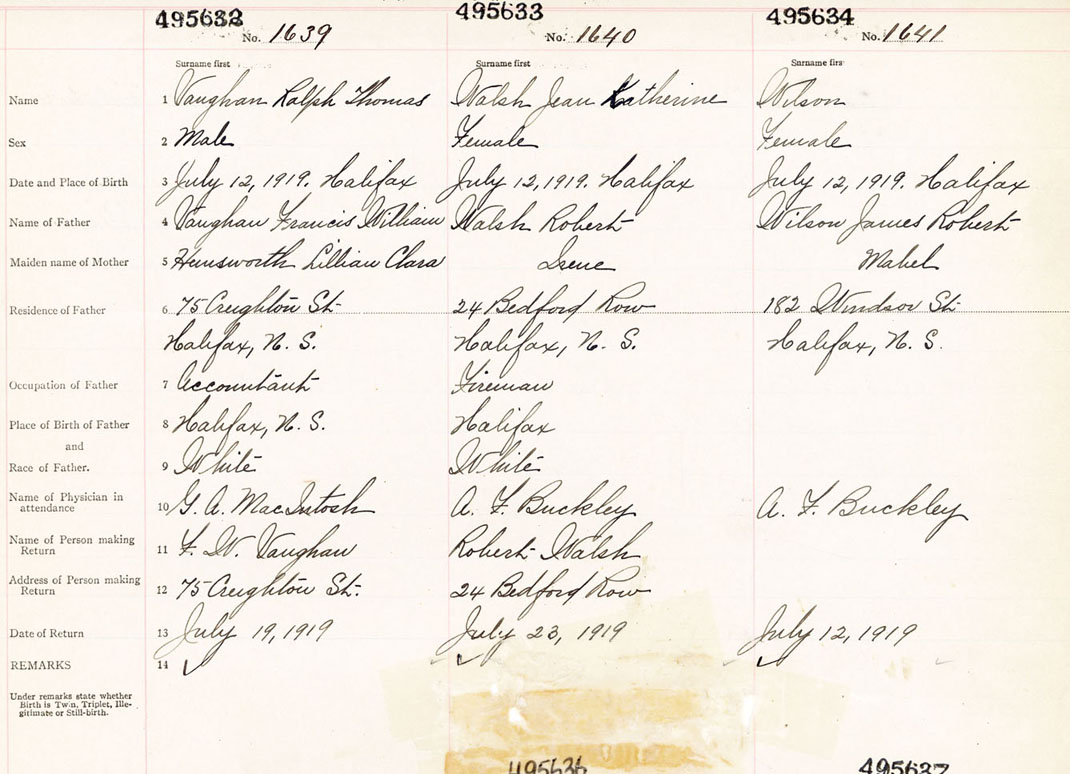 495632 495633 495634
No. 1639 No. 1640 No. 1641
Surname first Surname first Surname firs
Name 1 Vaughan Ralph Thomas Walsh Jean Katherine Wilson
Sex 2 Male Female Female
Date and Place of Birth 3 July 12, 1919. Halifax July 12, 1919. Halifax July 12, 1919. Halifax
Name of Father 4 Vaughan Francis William Walsh Robert Wilson James Robert
Maiden name of Mother 5 Hemsworth Lillian Clara Irene Mabel
Residence of Father 6 75 Creighton St. 24 Bedford Row 182 Windsor St.
Halifax, N. S. Halifax, N. S. Halifax, N. S.
Occupation of Father 7 Accountant Fireman
Place of Birth of Father 8 Halifax, N. S. Halifax
and
Race of Father. 9 White White
Name of Physician in
attendance 10 G. A. MacIntosh A. F. Buckley A. F. Buckley
Name of Person making
Return 11 F. W. Vaughan Robert Walsh
Address of Person making
Return 12 75 Creighton St. 24 Bedford Row
Date of Return 13 July 19, 1919 July 23, 1919 July 12, 1919
REMARKS 14 ✓ ✓ ✓
Under remarks state whether
Birth is Twin, Triplet, Ille-
gitimate or Still-birth.
495636 495637